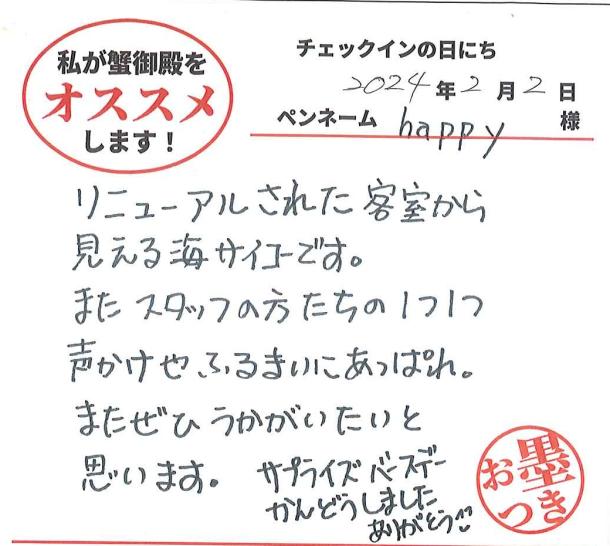 私が蟹御殿を
オススメ
します！
チェックインの日にち
2024年2月2日
ペンネーム happy 様
リニューアルされた客室から
見える海サイコーです。
またスタッフの方たちの1つ1つ
声かけやふるまいにあっぱれ。
またぜひうかがいたいと
思います。
サプライズバースデー
かんどうしました
ありがとう
お墨つき